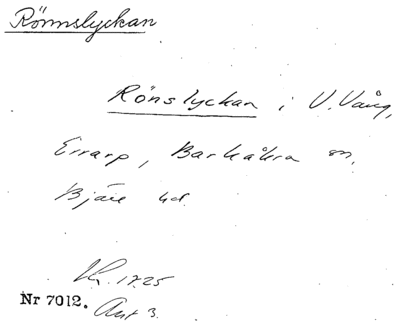 Rönnslyckan
Rönslyckan i V. Vång,
Errarp, Barkåkra sn,
Bjäre hd.
1725
Nr 7012. Akt 3.